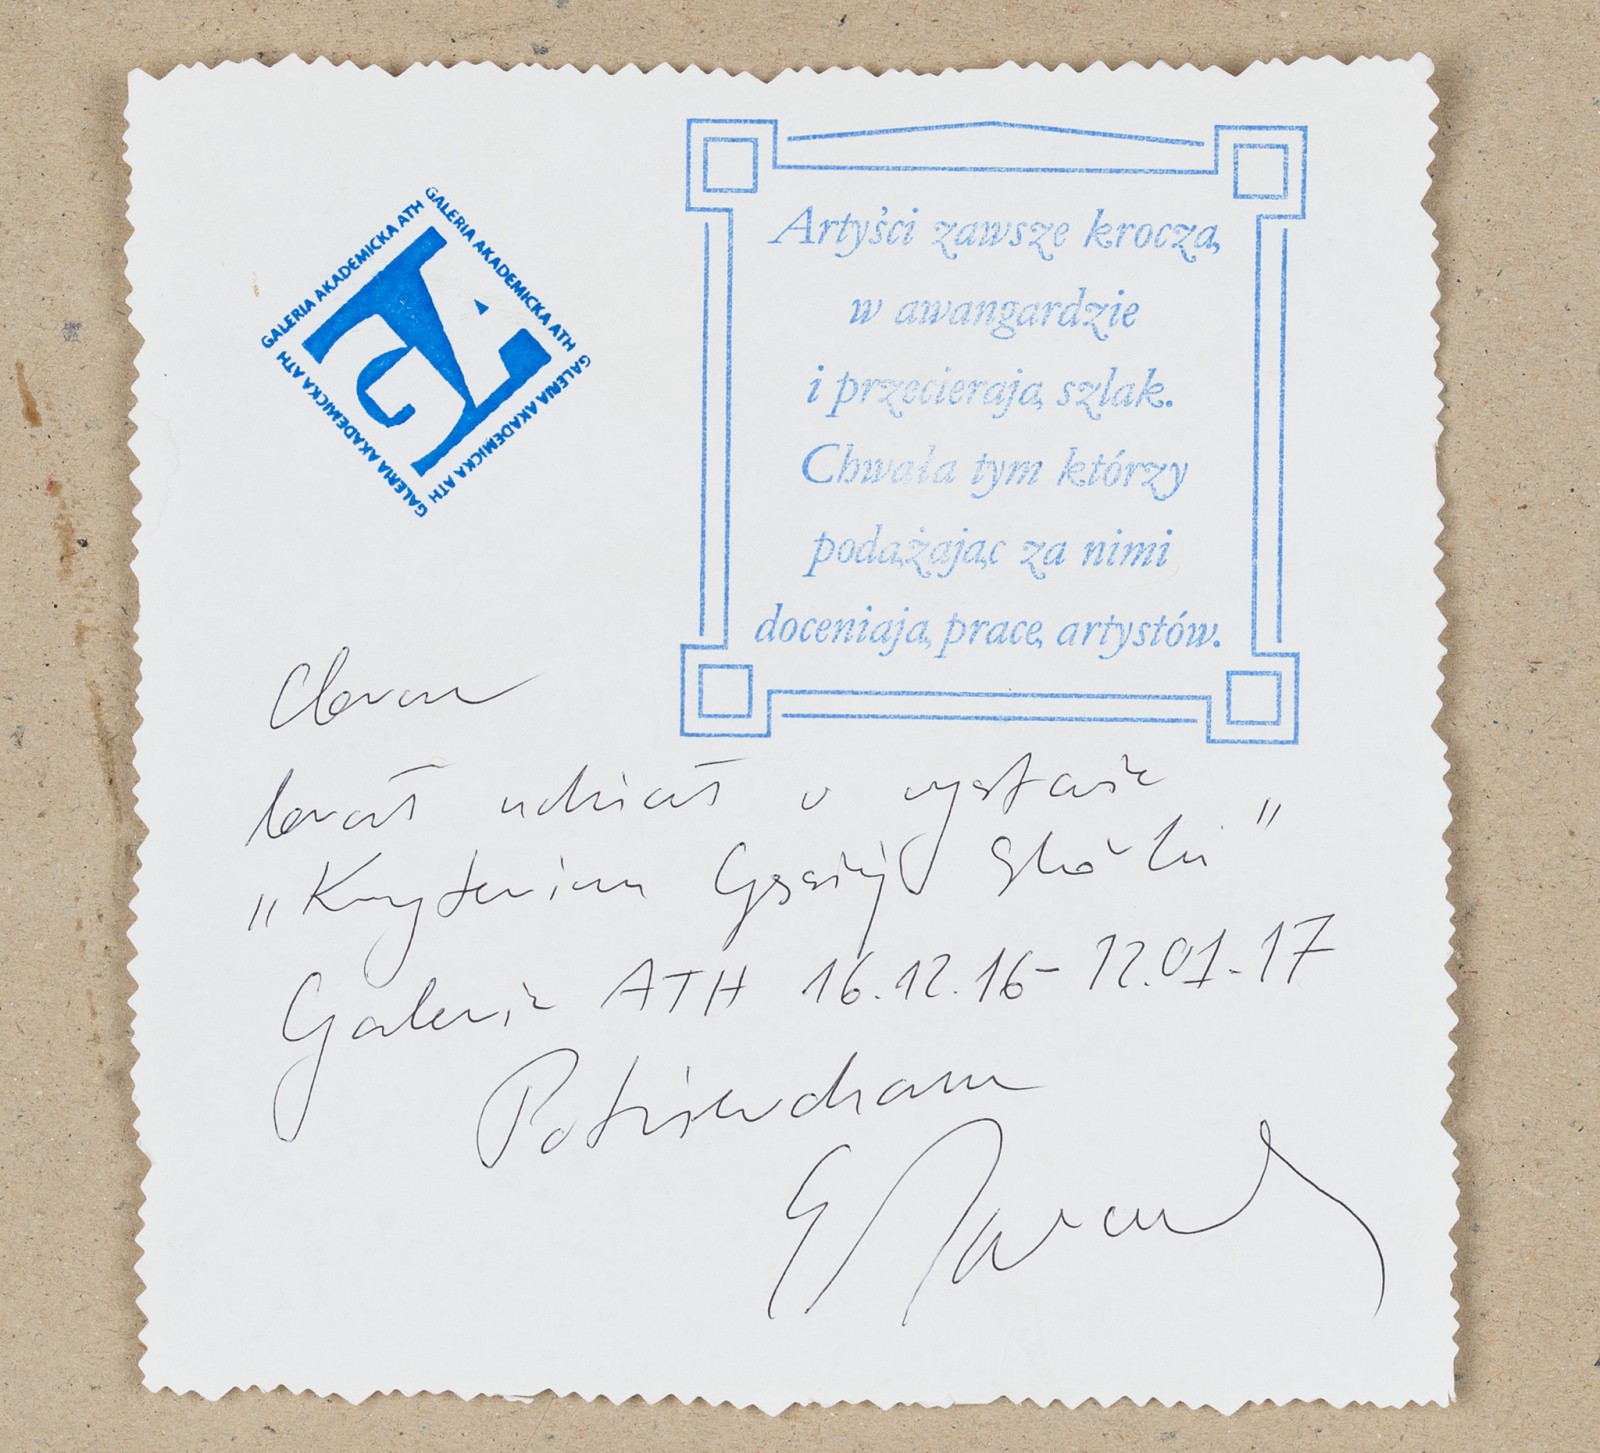 GALERIA AKADEMICKA ATH
GALERIA AKADEMICKA ATH
GALERIA AKADEMICKA ATH
GALERIA AKADEMICKA ATH
Artyści zawsze kroczą
w awangardzie
i przecierają szlak.
Chwała tym którzy
podążając za nimi
doceniają pracę artystów.
Obraz
brał udział w wystawie
„Kryterium
Galeria ATH 16.12.16-12.01.17
Potwierdzam